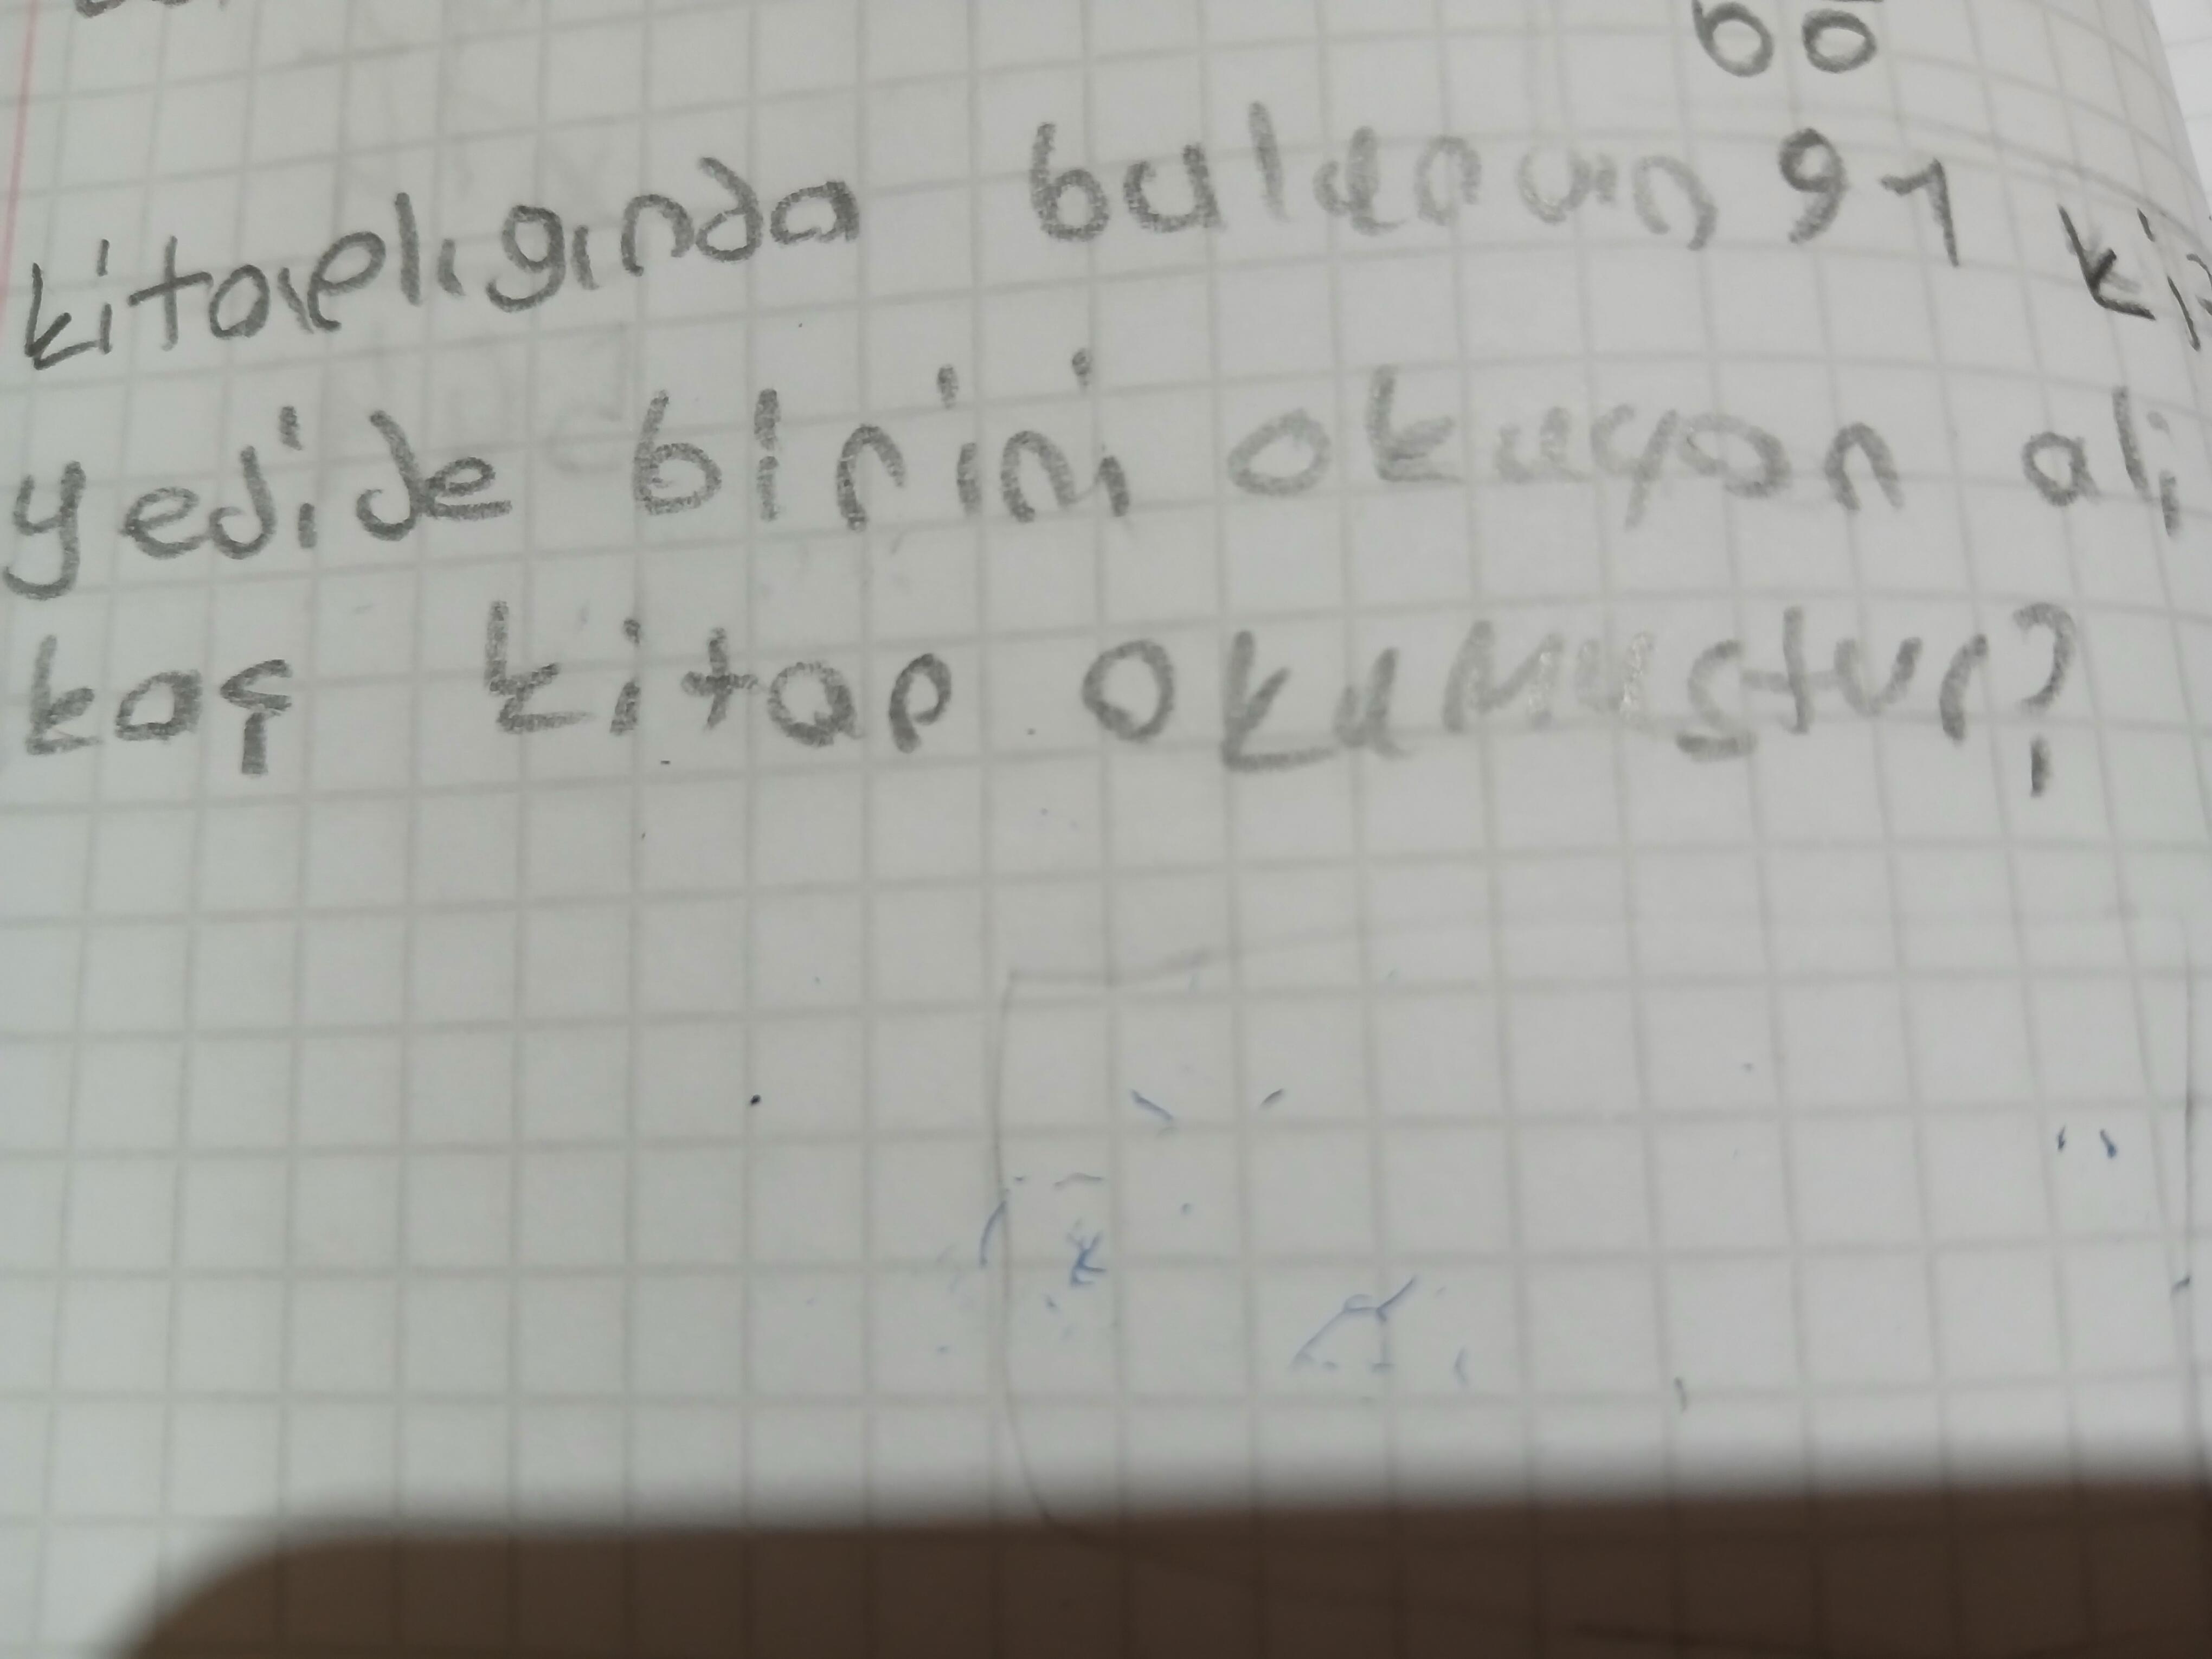 60
kitaplıgında bulunan 91 ki
yedide birini okuyan ali
kaç kitap okumuştur?